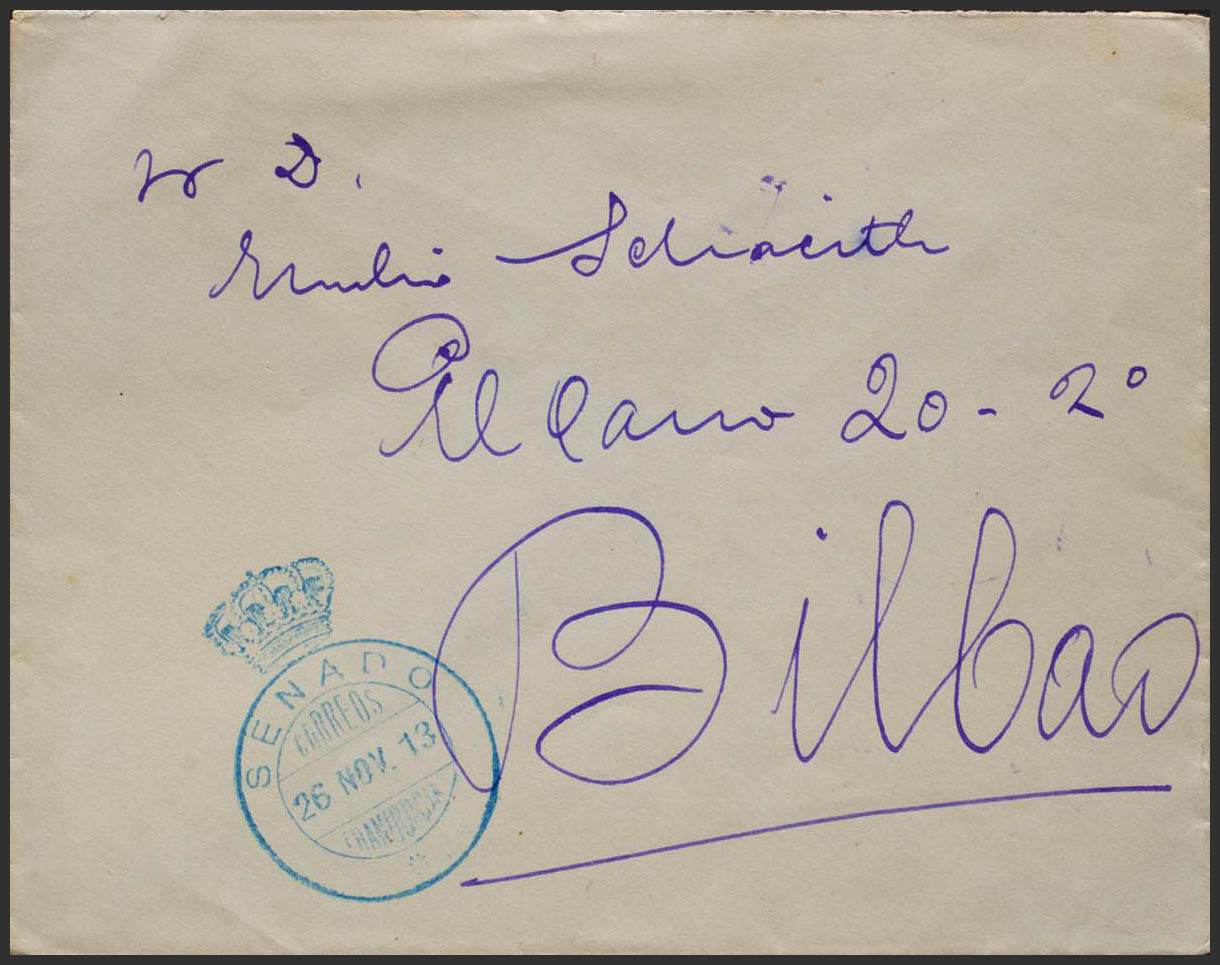 Sr D.
Emilio
Elcano 20 - 2º
Bilbao
SENADO
CORREOS
26 NOV. 13
FRANQUICIA